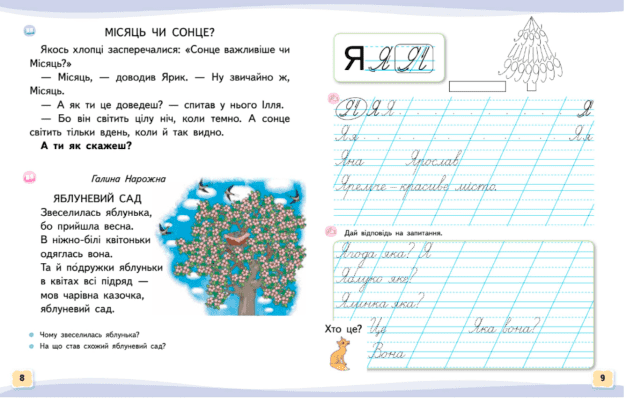 МІСЯЦЬ ЧИ СОНЦЕ?
Якось хлопці засперечалися: «Сонце важливіше чи
Місяць?»
— Місяць, — доводив Ярик. — Ну звичайно ж,
Місяць.
— А як ти це доведеш? — спитав у нього Ілля.
— Бо він світить цілу ніч, коли темно. А сонце
світить тільки вдень, коли й так видно.
А ти як скажеш?
Галина Нарожна
ЯБЛУНЕВИЙ САД
Звеселилась яблунька,
бо прийшла весна.
В ніжно-білі квітоньки
одяглась вона.
Та й подружки яблуньки
в квітах всі підряд —
мов чарівна казочка,
яблуневий сад.
Чому звеселилась яблунька?
На що став схожий яблуневий сад?
8
Я Я Я
Я Я Я Я
Яя Яя
Яна Ярослав
Яремче – красиве місто.
Дай відповідь на запитання.
Ягода яка? Я
Яблуко яке?
Ялинка яка?
Хто це? Це Яка вона?
Вона
9